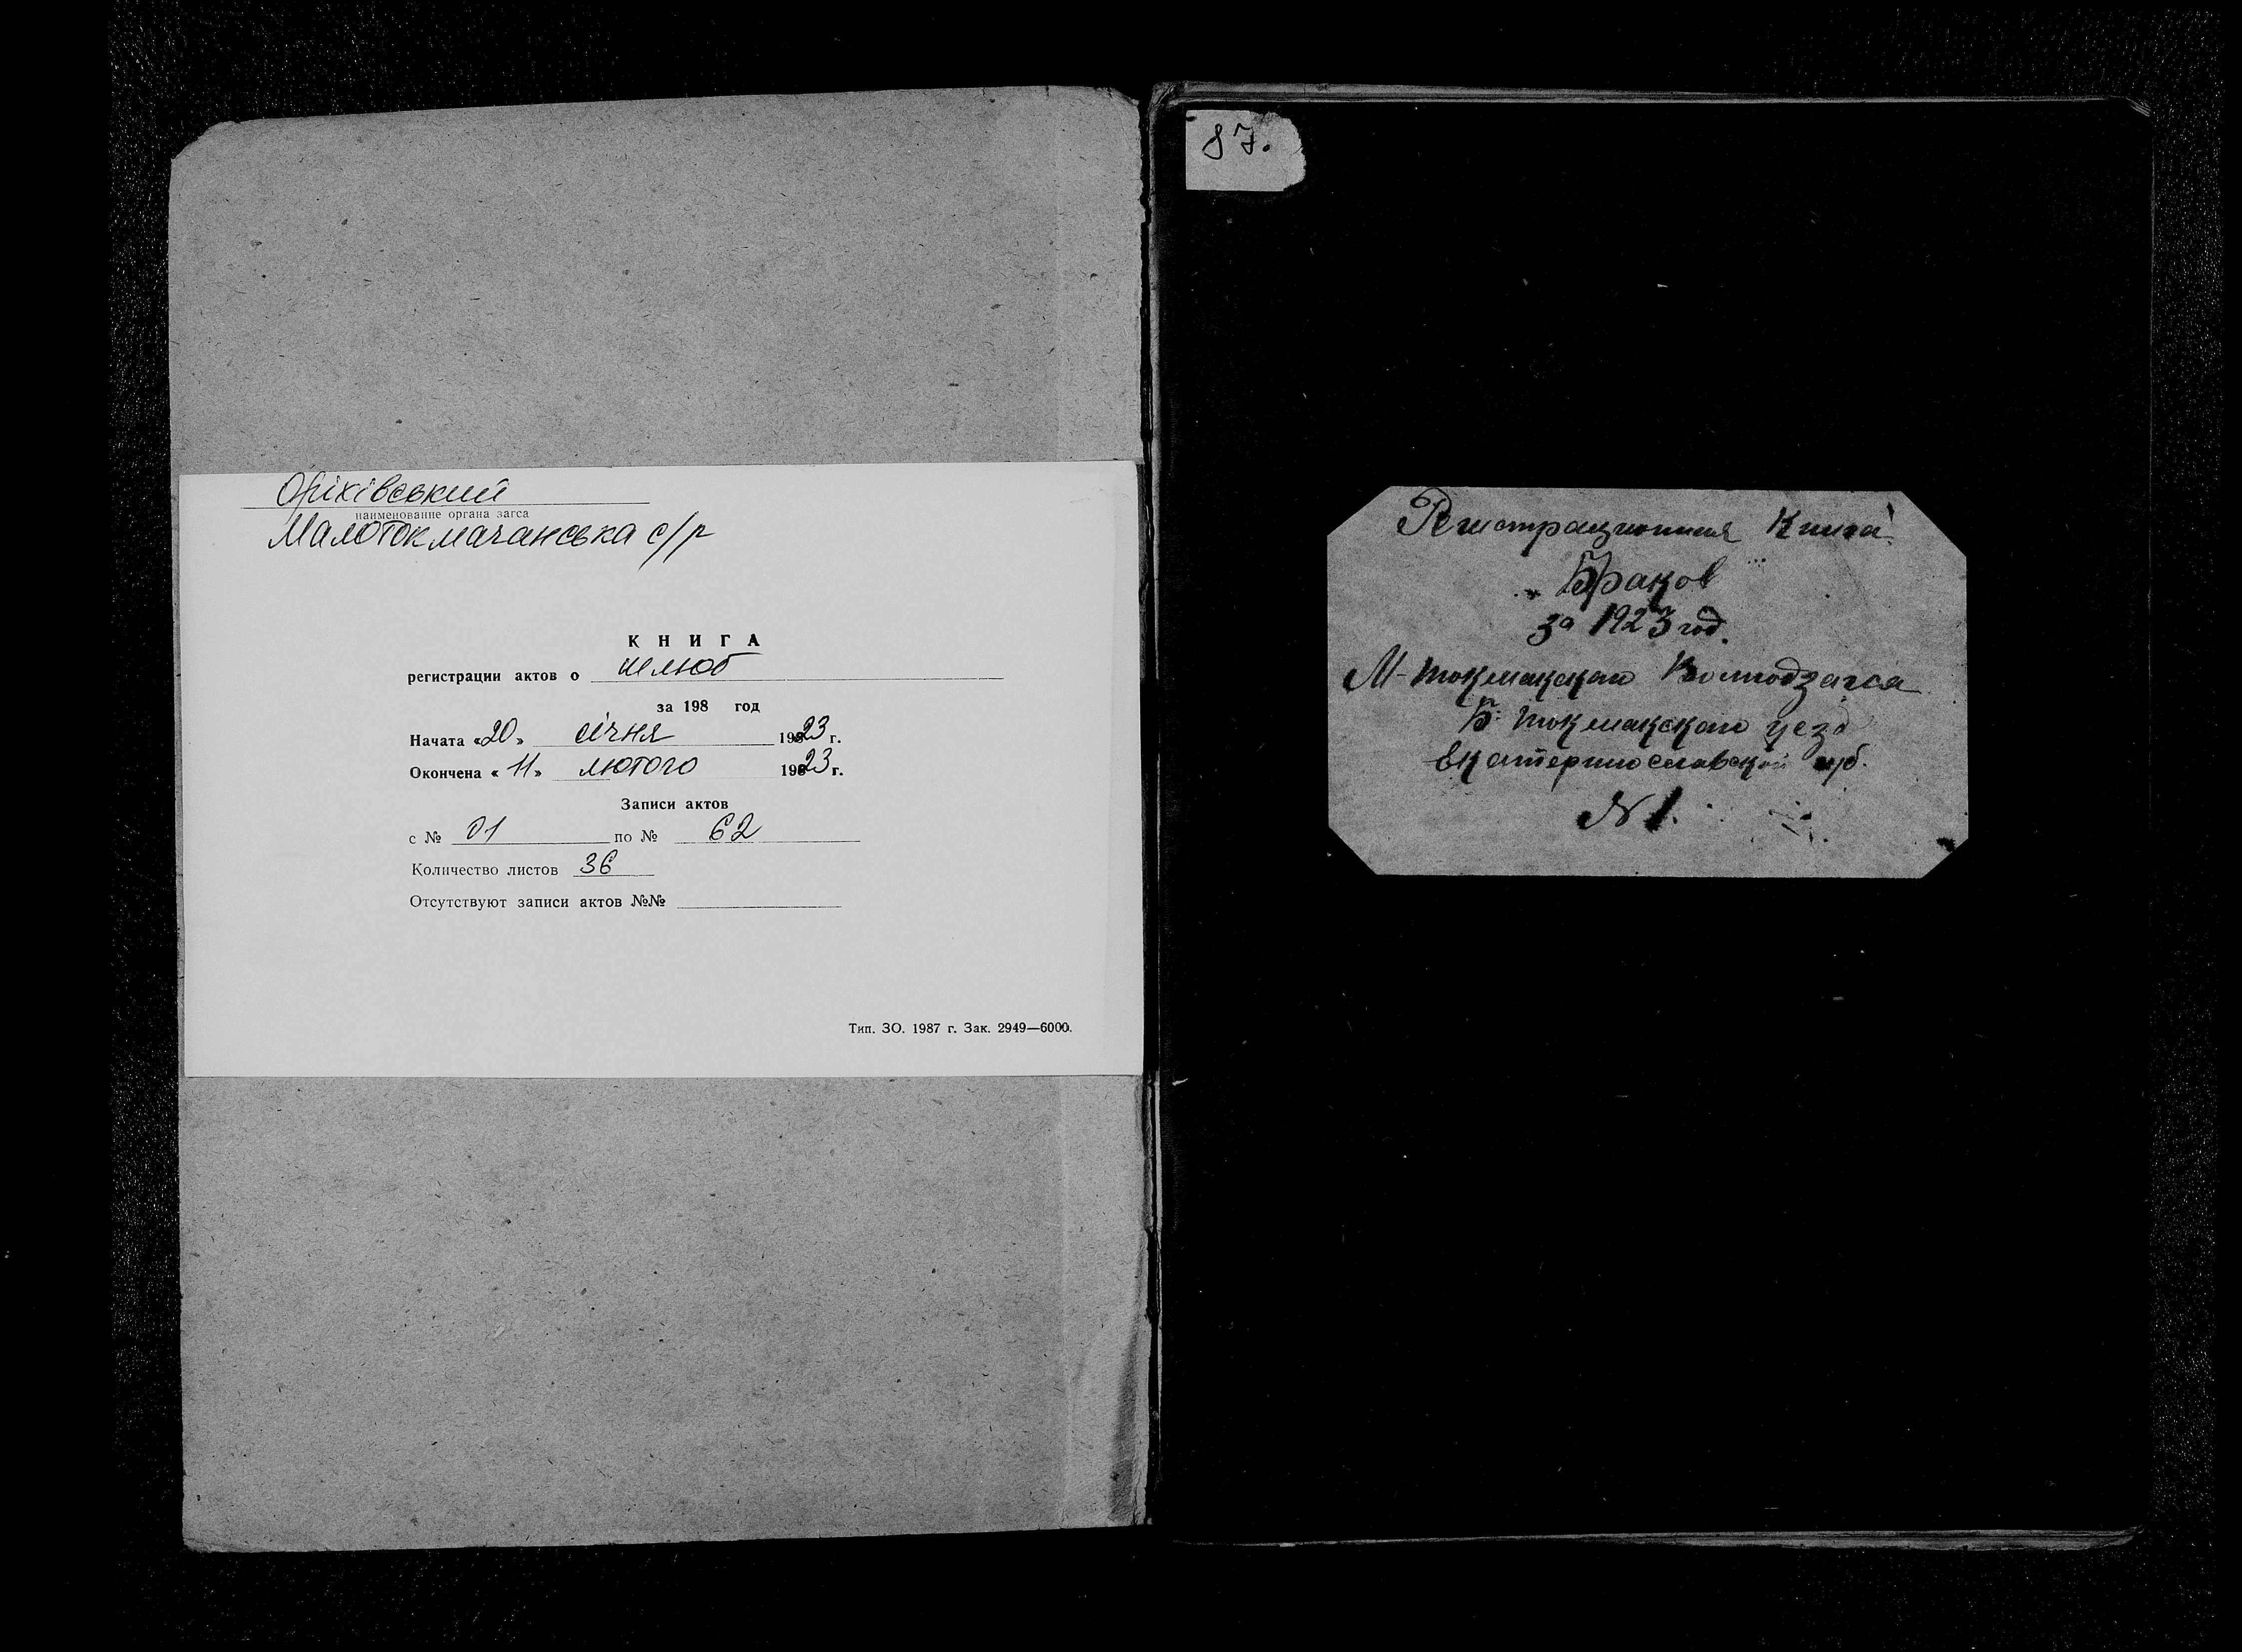 Оріхівський
наименование органа загса
Малотокмачанська с/р
КНИГА
регистрации актов о шлюб
за 198 год
Начата «20» січня 1923 г.
Окончена «11» лютого 1923 г.
Записи актов
с № 01 по № 62
Количество листов 36
Отсутствуют записи актов №№
Тип. ЗО. 1987 г. Зак. 2949—6000.
87.
Регистрационная Книга
Браков
за 1923 год.
М-Токмакского Волподзагса
Б. Токмакского уезд
Екатеринославской губ.
N 1.